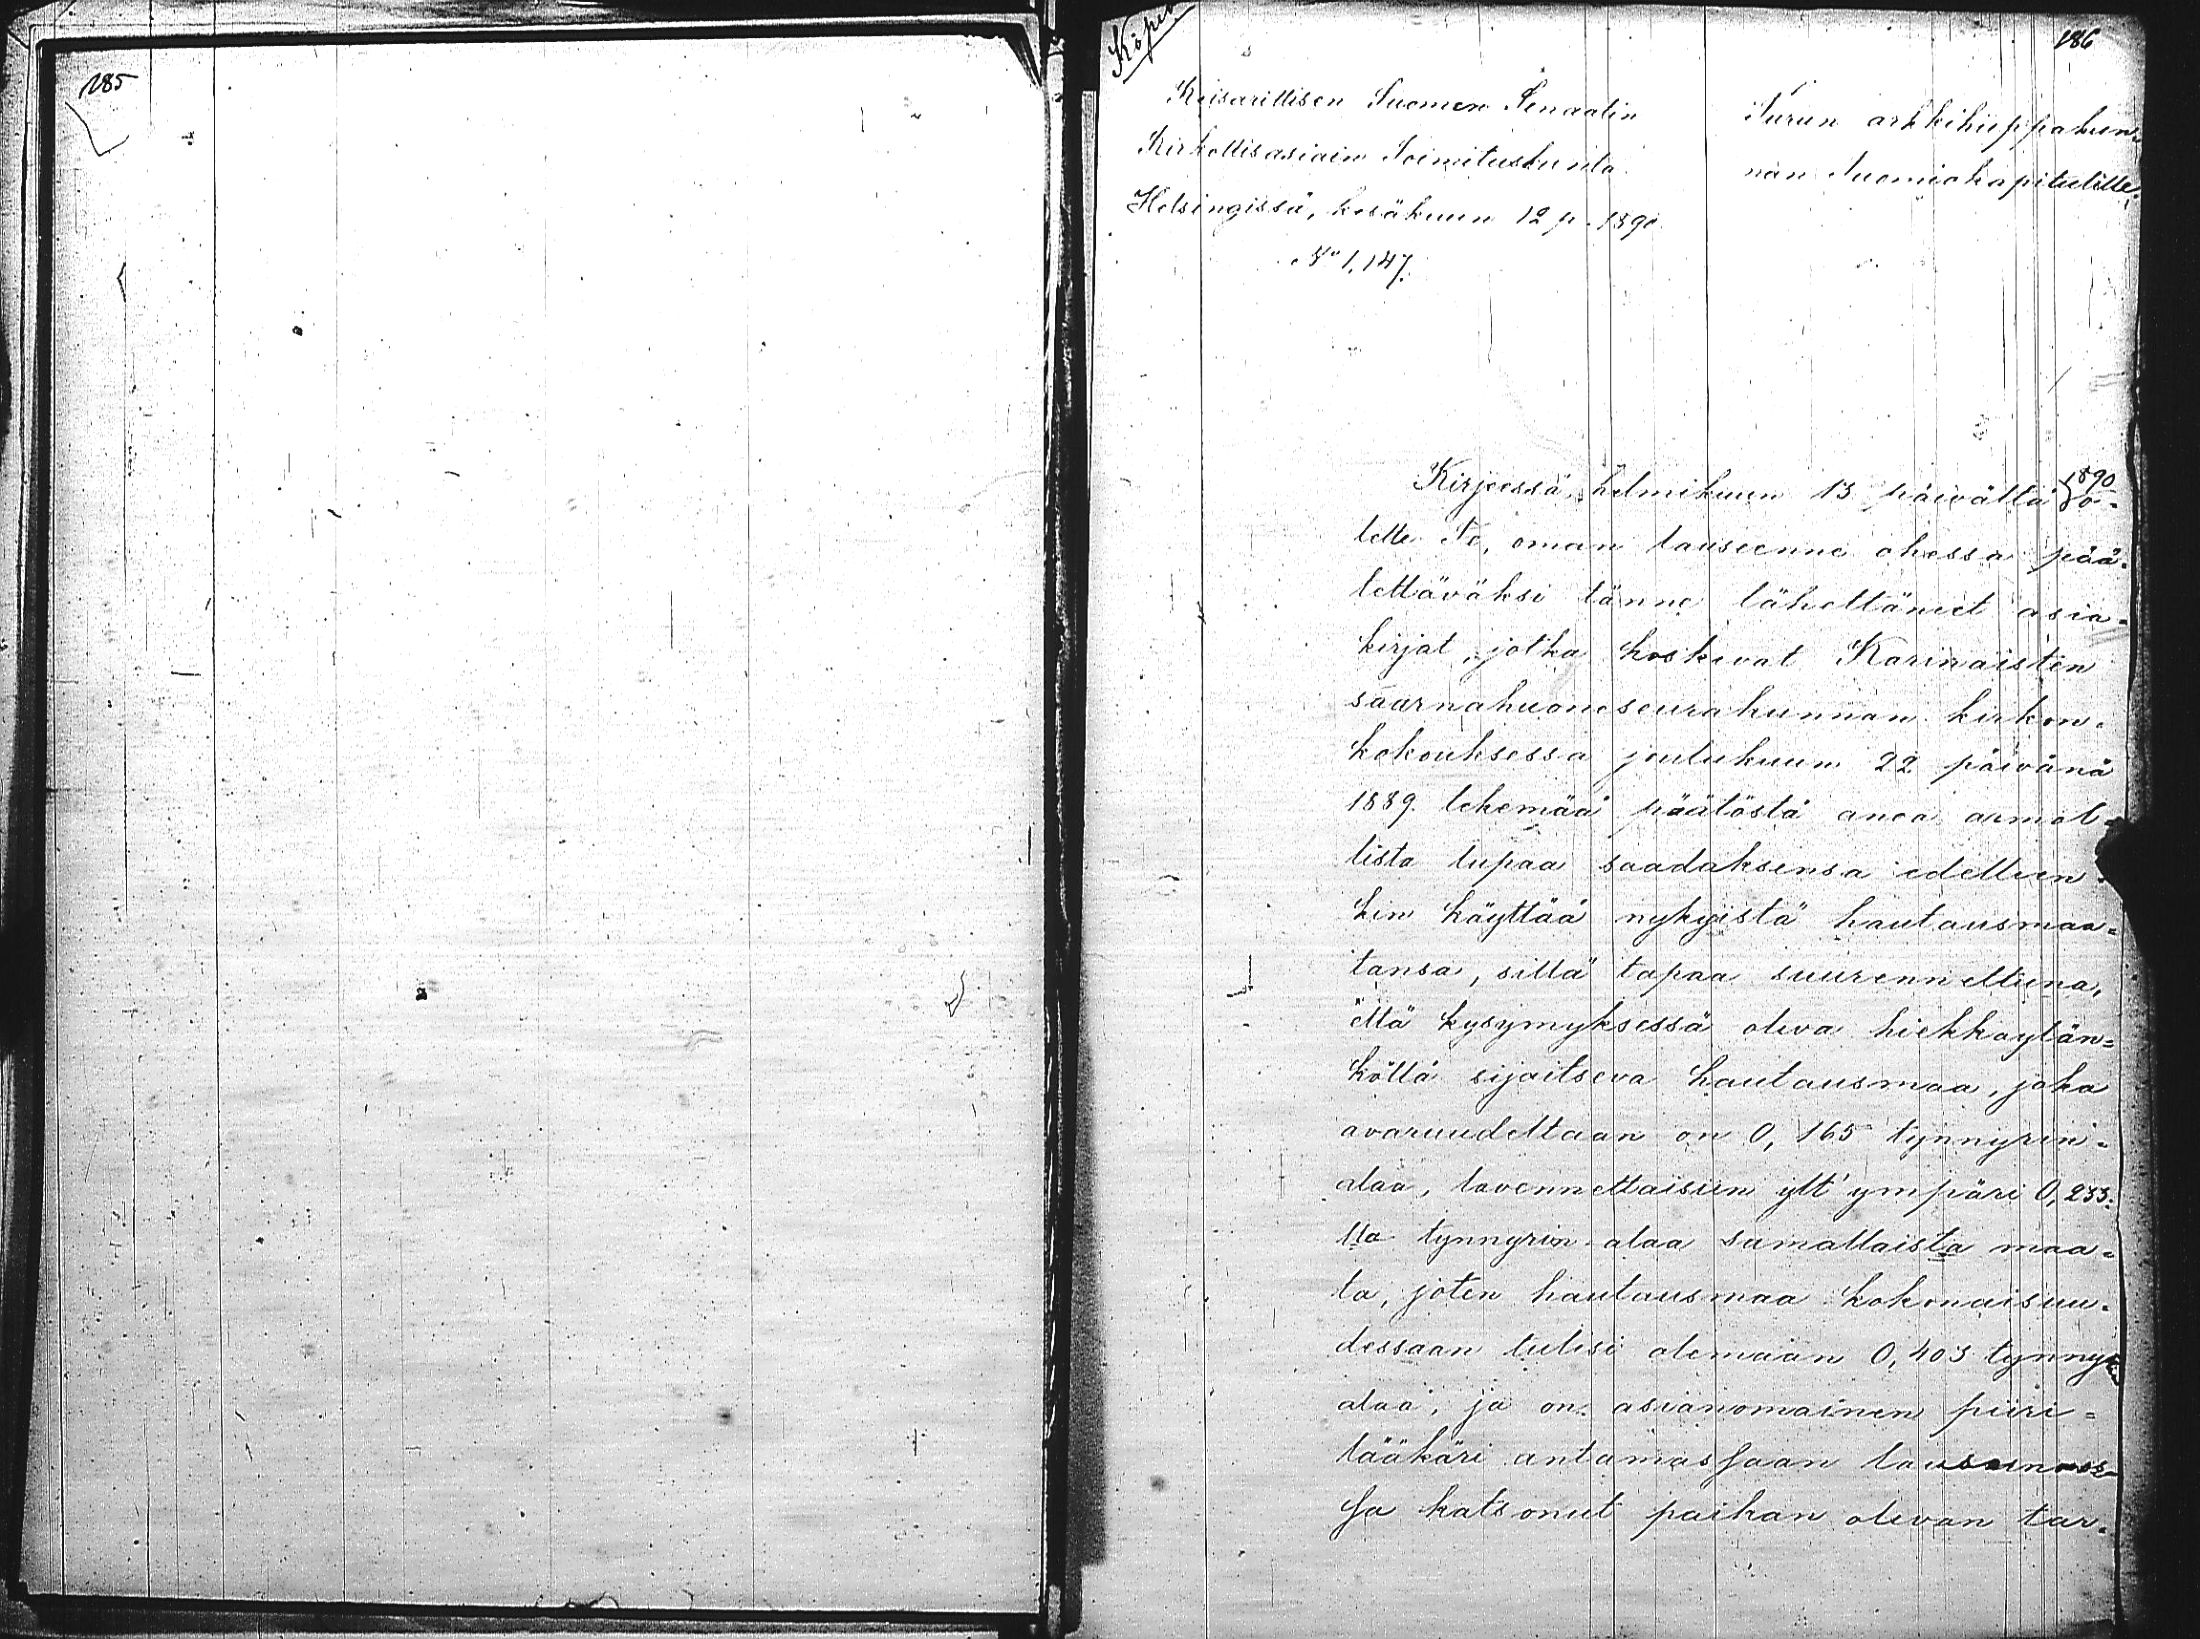 185
186
Köpia
Keisarillisen Suomen Senaatin
Kirkollisasiain Toimituskunta
Helsingissä, kesäkuun 12 p. 1890
No 1,147.
Turun arkkihiippakun-
nan Tuomiokapitulille.
Kirjeessä helmikuun 13 päivältä 1890 o-
lette Te, oman lauseenne ohessa pää-
tettäväksi tänne lähettäneet asia-
kirjat, jotka koskevat Karinaisten
saarnahuoneseurakunnan kirkon-
kokouksessa joulukuun 22 päivänä
1889 tekemää päätöstä anoa armol-
lista lupaa saadaksensa edelleen-
kin käyttää nykyistä hautausmaa-
tansa, sillä tapaa suurennettuna,
että kysymyksessä oleva hiekkaylän-
köllä sijaitseva hautausmaa, joka
avaruudeltaan on 0,165 tynnyrin-
alaa, lavennettaisiin ylt' ympäri 0,233:
lla tynnyrin alaa samallaista maa-
ta, joten hautausmaa kokonaisuu-
dessaan tulisi olemaan 0,403 tynnyrin
alaa, ja on asianomainen piiri-
lääkäri antamassaan lausunnos-
sa katsonut paikan olevan tar-